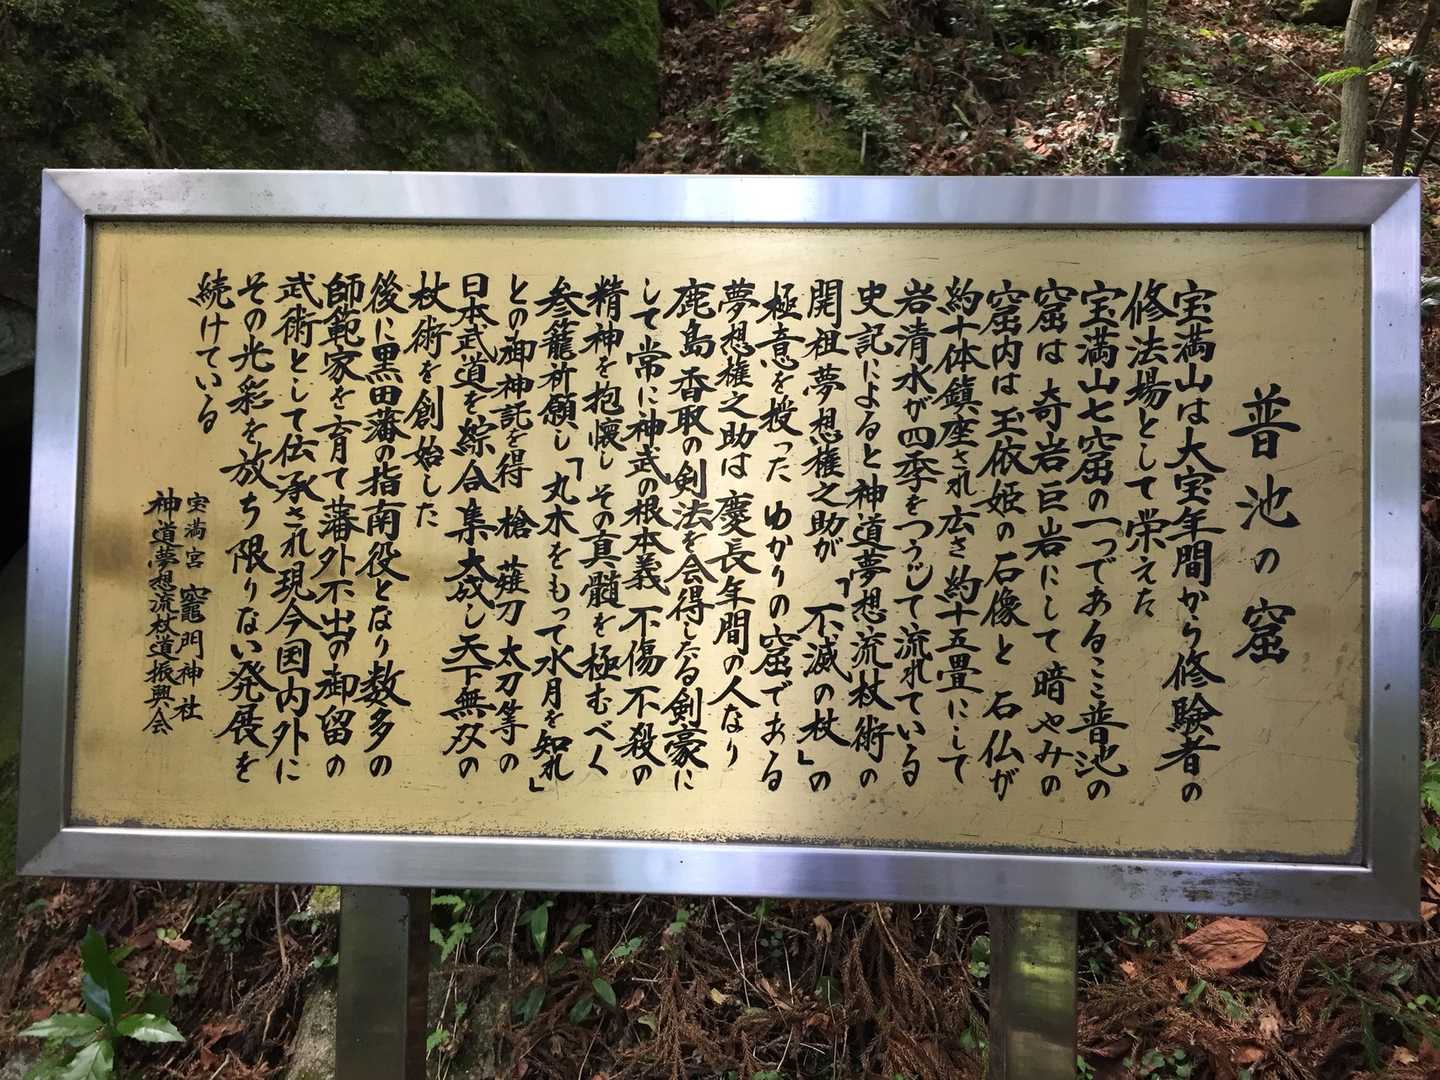 普池の窟
宝満山は大宝年間から修験者の
修法場として栄えた
宝満山七窟の一つであるここ普池の
窟は 奇岩巨岩にして暗やみの
窟内は玉依姫の石像と 石仏が
約十体鎮座され広さ約十五畳にして
岩清水が四季をつうじて流れている
史記によると神道夢想流杖術の
開祖夢想権之助が「不滅の杖」の
極意を授った ゆかりの窟である
夢想権之助は 慶長年間の人なり
鹿島香取の剣法を会得したる剣豪に
して常に神武の根本義 不傷不殺の
精神を抱懐し その真髄を極むべく
参籠祈願し「丸木をもって水月を知れ」
との御神託を得 槍 薙刀 太刀等の
日本武道を綜合集大成し天下無双の
杖術を創始した
後に黒田藩の指南役となり 数多の
師範家を育て藩外不出の御留の
武術として伝承され現今国内外に
その光彩を放ち限りない発展を
続けている
宝満宮 竈門神社
神道夢想流杖道振興会